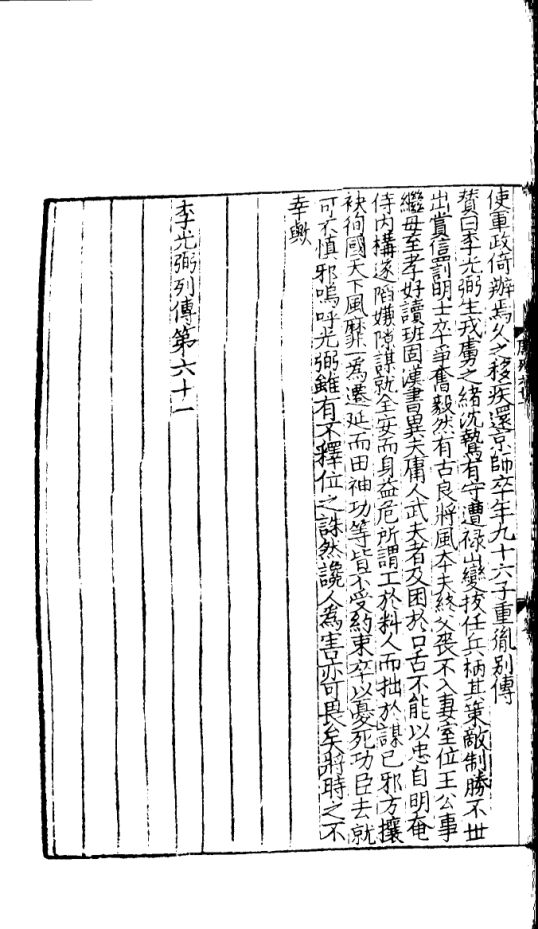 使軍政倚辦焉久之移疾還京師卒年九十六子重胤別傳
贊曰李光弼生戎虜之緒沈鷙有守遭祿山變拔任兵柄其策敵制勝不世
出賞信罰明士卒爭奮毅然有古良將風本夫終父喪不入妻室位王公事
繼母至孝好讀班固漢書異夫庸人武夫者及困於口舌不能以忠自明奄
侍内構遂䧟嫌隙謀就全安而身益危所謂工於料人而拙於謀己邪方攘
袂徇國天下風靡一爲遷延而田神功等皆不受約束卒以憂死功臣去就
可不慎邪嗚呼光弼雖有不釋位之誅然讒人爲害亦可畏矣將時之不
幸歟
李光弼列傳第六十一